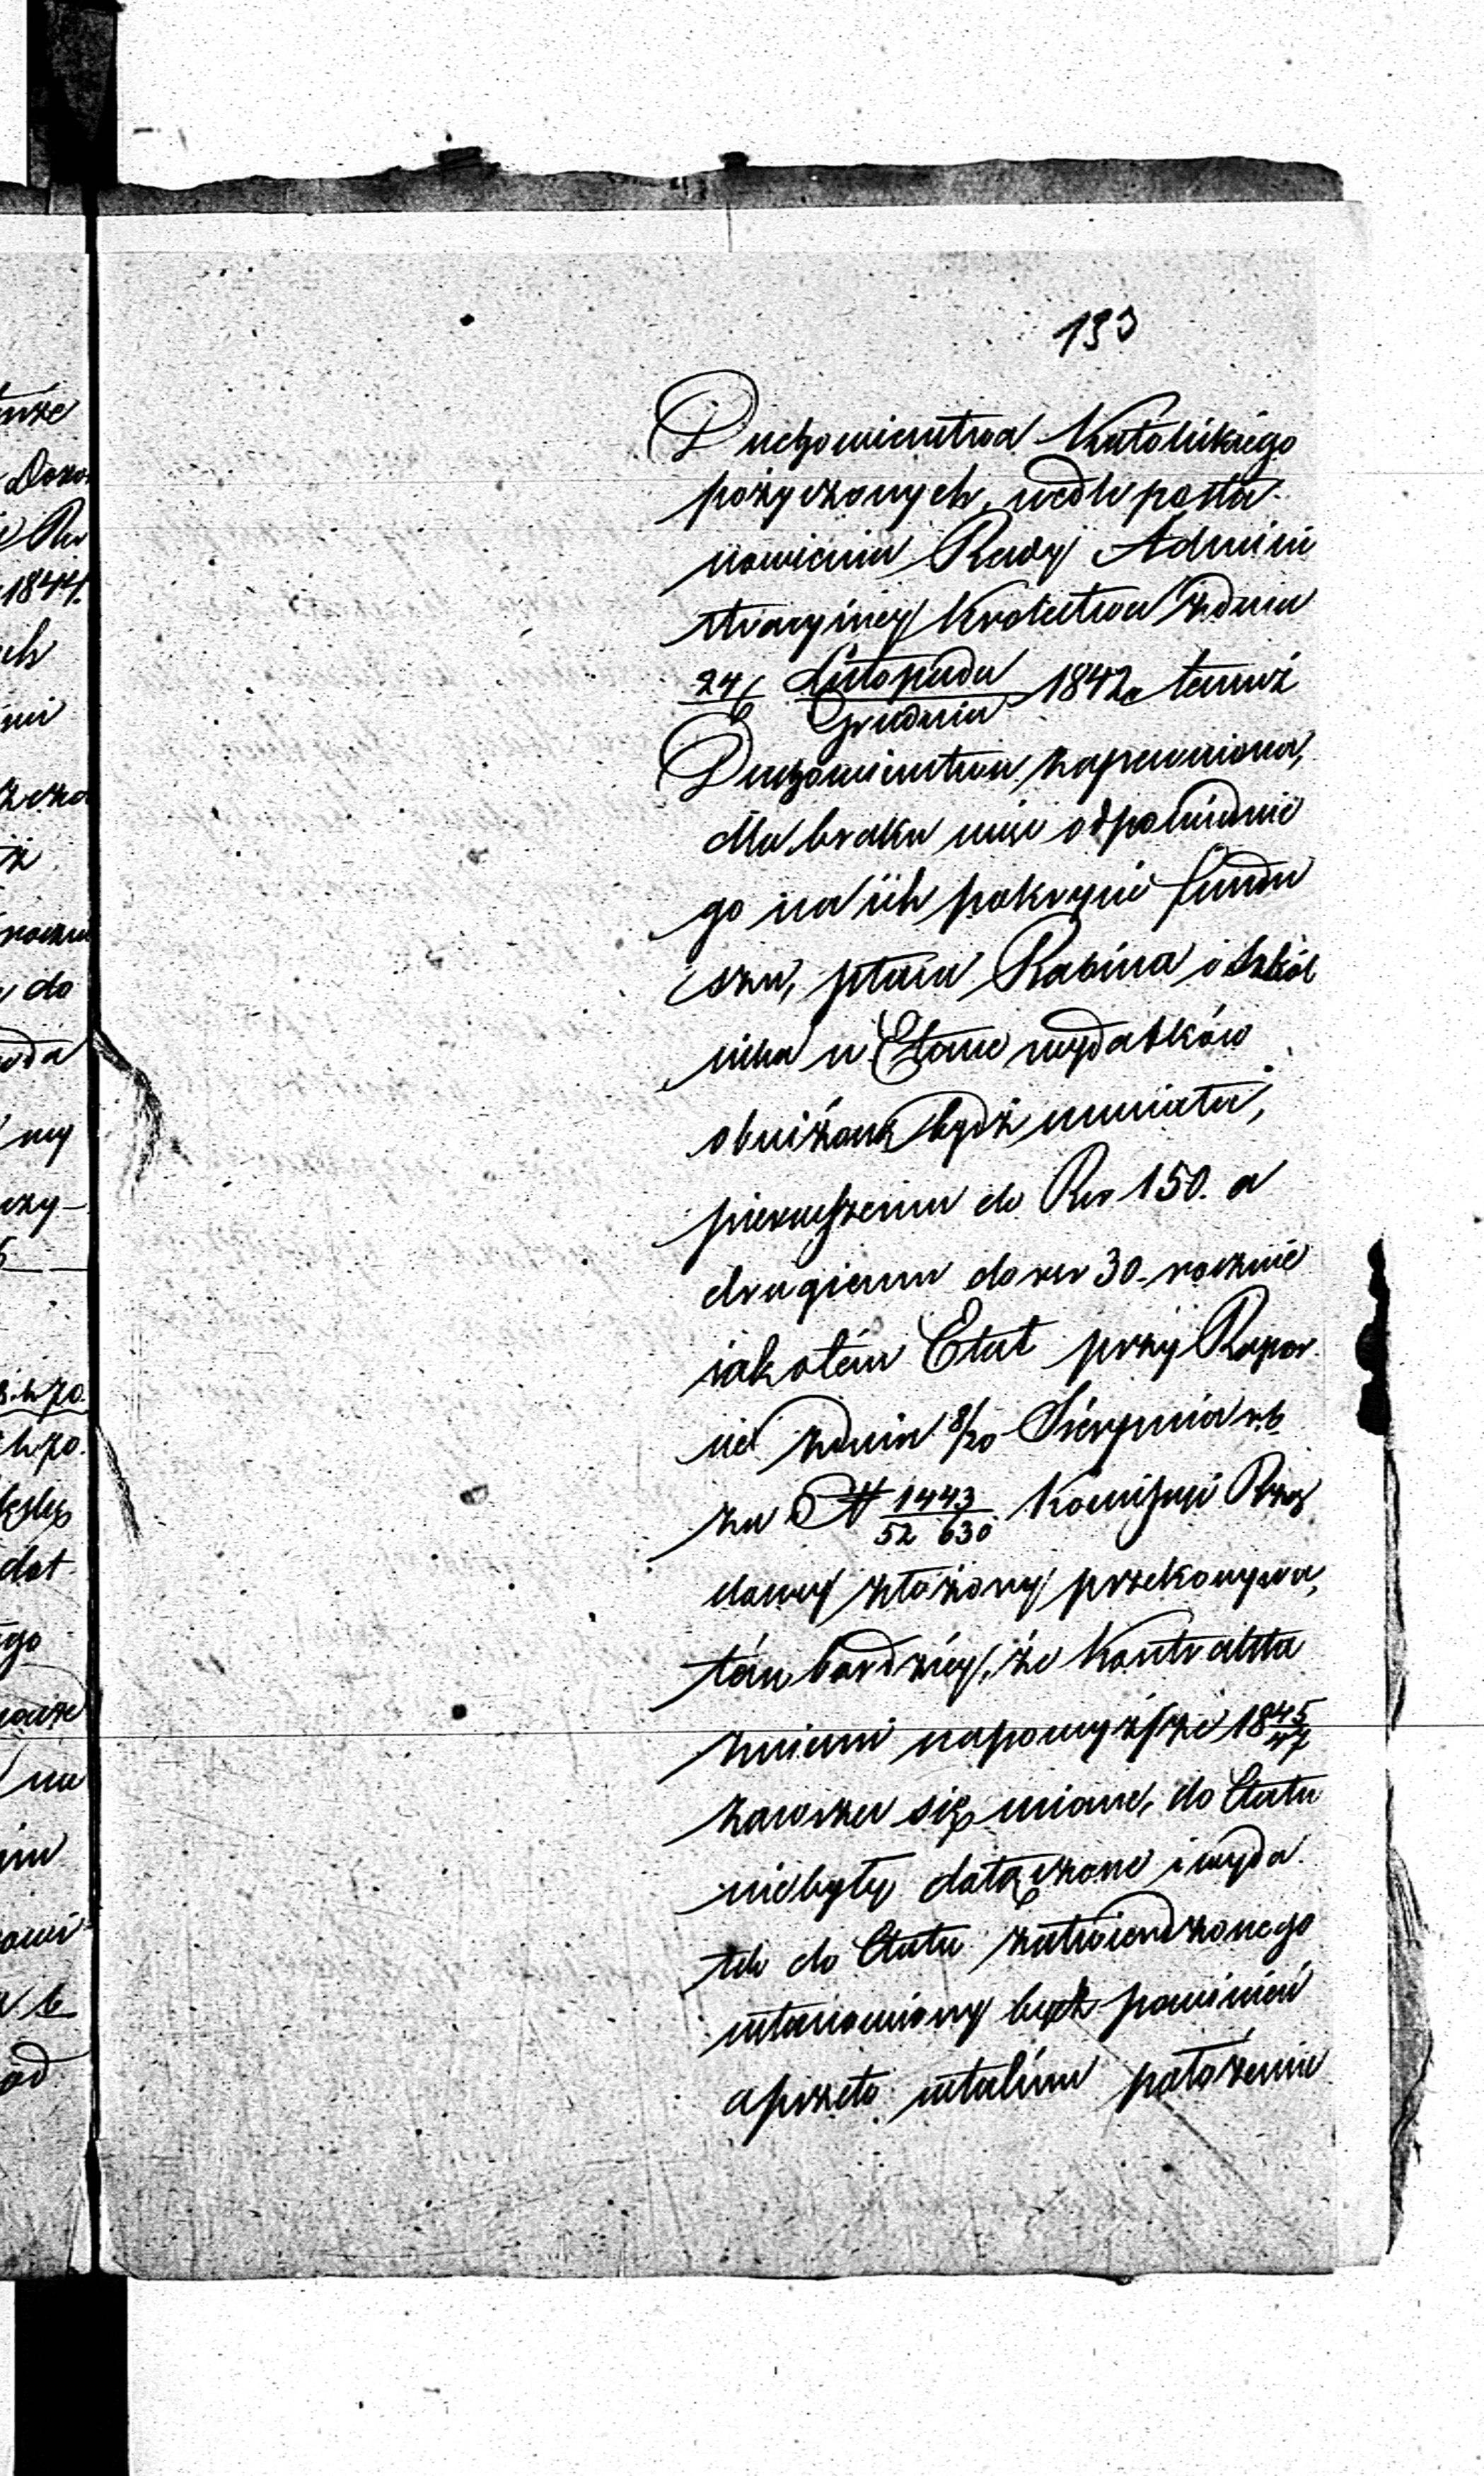 193
Duchowieństwa Katolickiego
pożyczonych, wedle posta-
nowienia Rady Admini
stracyiney Krolestwa z dnia
24/6 Listopada/Grudnia 1842 r. temuż
Duchowieństwu zapewniona,
dla braku więc odpowiednie
go na ich pokrycie fundu
szu, płaca Rabina i Szkol
nika w Etacie wydatków
obniżoną bydź musiała,
pierwszemu do Rsr 150. a
drugiemu do rsr 30. rocznie
iak o tém Etat przy Rapor
cie z dnia 8/20 Sierpnia r. b.
za N 1443/52 630 Kommissyi Rzą
dowey złożony przekonywa,
tém bardziéy, że Kontrakta
z niemi na powyższe 1845/47
zawrzeć się miane, do Etatu
niebyły dołączone i wyda
tek do Etatu zatwierdzonego
ustanowiony bydź powinien
a przeto w takim położeniu
tuże
1844.
do
ny
czy-
5
h 70.
dat
go
na
od